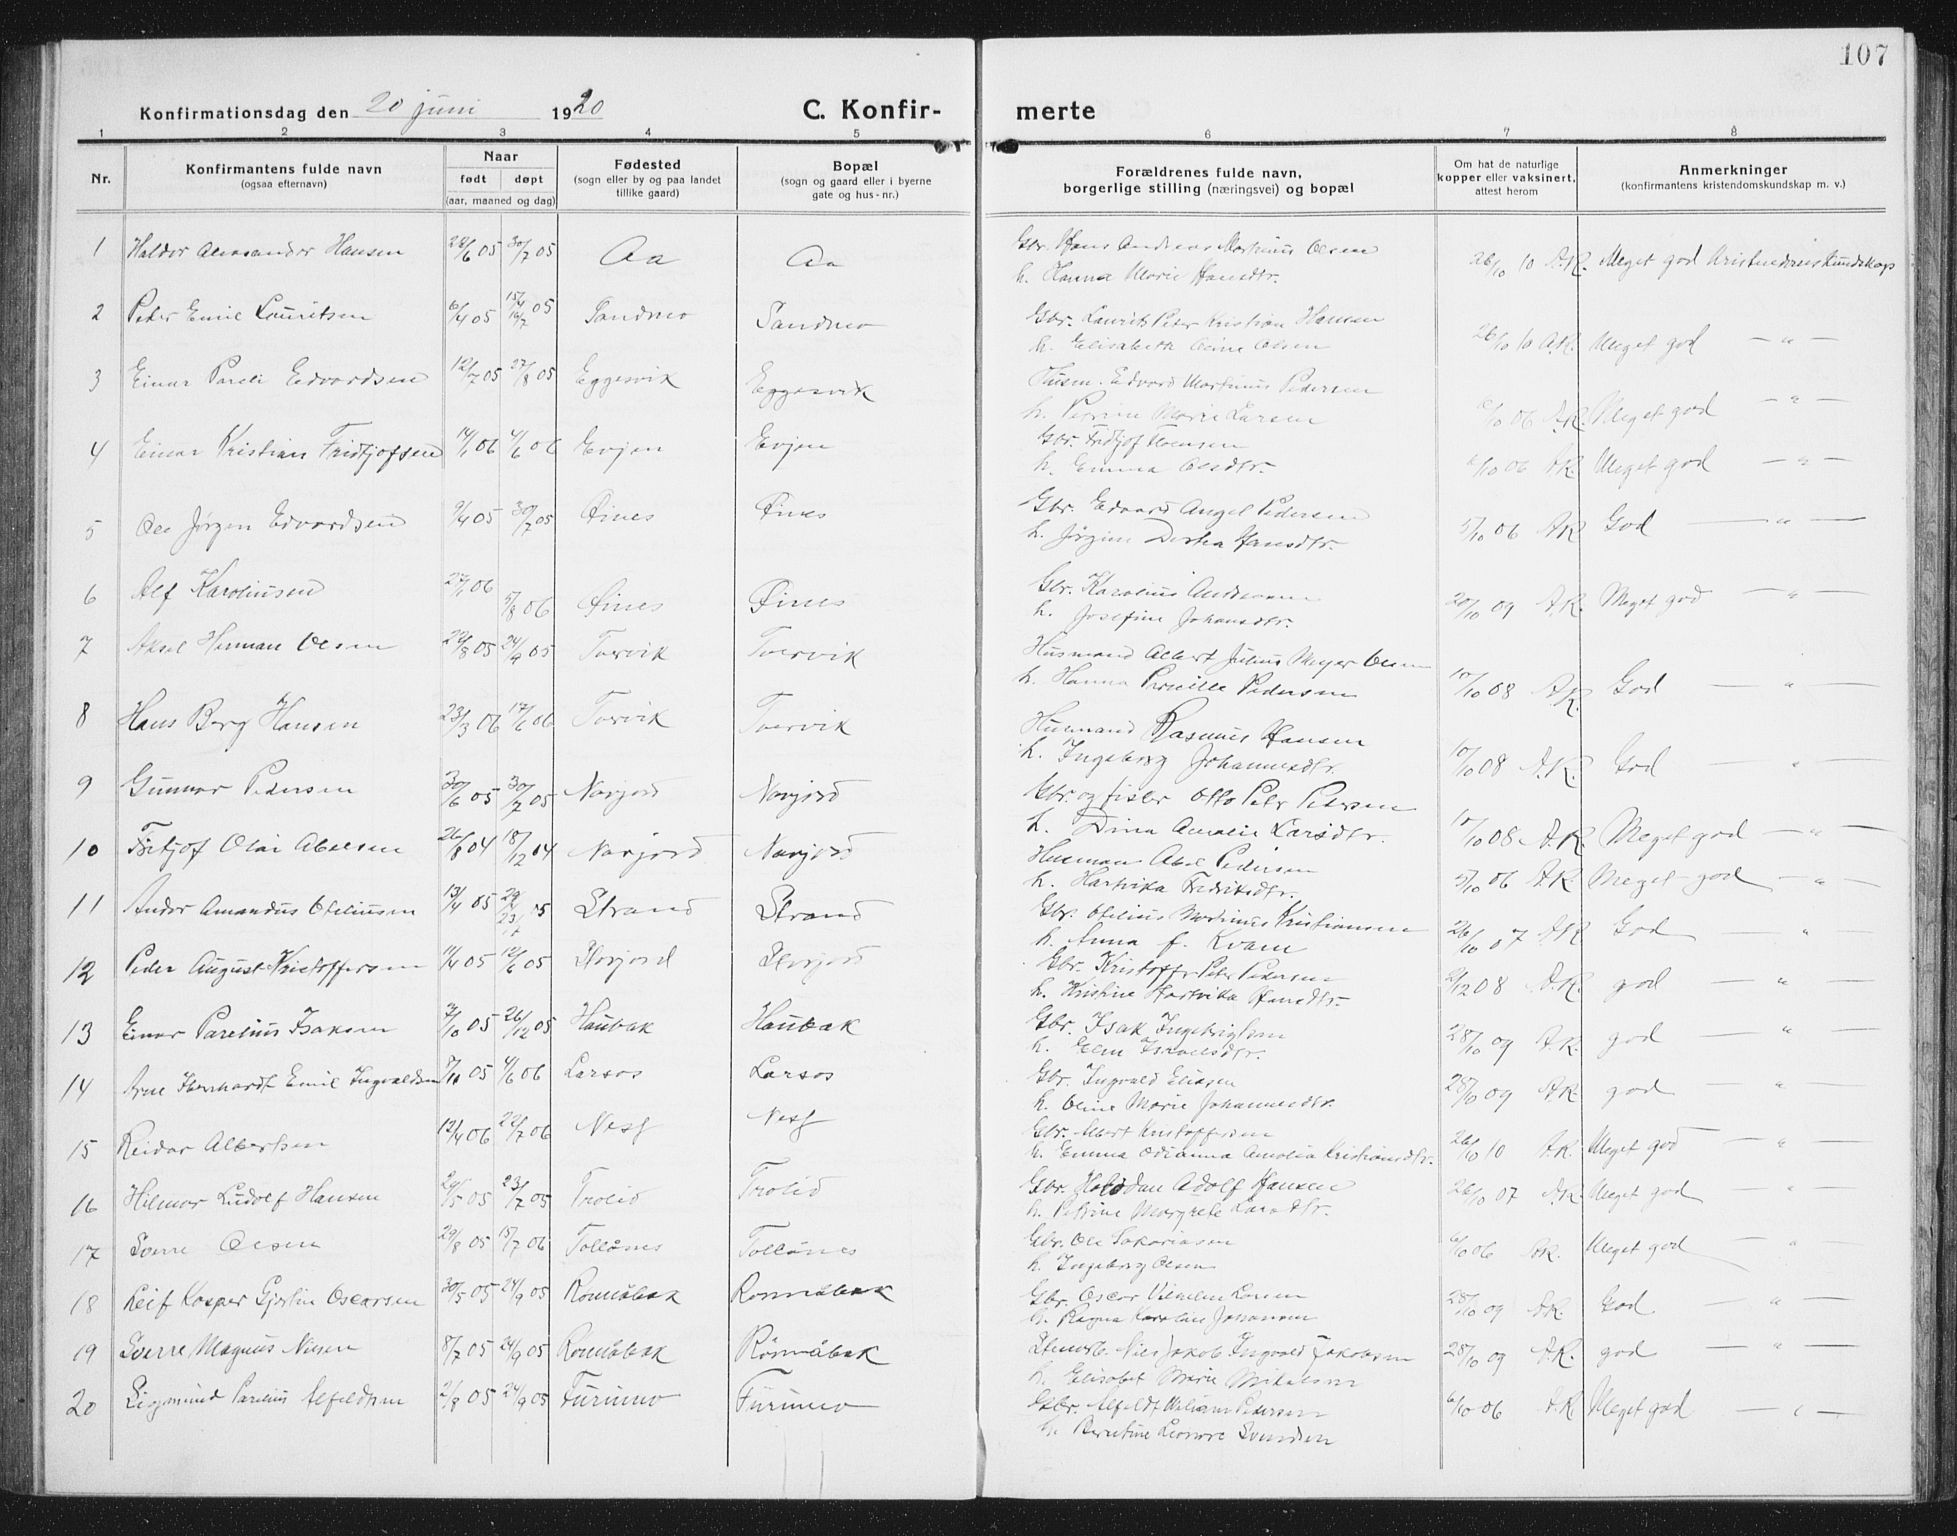 107
Konfirmationsdag den 20 juni 1920
C. Konfir- merte
1 2 3 4 5 6 7 8
Nr.
Konfirmantens fulde navn
(ogsaa efternavn)
Naar
født døpt
(aar, maaned og dag)
Fødested
(sogn eller by og paa landet
tillike gaard)
Bopæl
(sogn og gaard eller i byerne
gate og hus-nr.)
Forældrenes fulde navn,
borgerlige stilling (næringsvei) og bopæl
Om hat de naturlige
kopper eller vaksinert,
attest herom
Anmerkninger
(konfirmantens kristendomskundskap m. v.)
1 Haldor Hansen 28/6 05 30/7 05 Aa Aa Gbr. Hans Andreas Martinus Olsen
h. Hanna Marie Hansdtr. 26/10 10 A.K. Meget god Kristendomskundskap
2 Peder Emil Lauritsen 6/4 05 05 Sandmo Sandmo Gbr. Laurits Peter Kristian Hansen
h. Elisabeth Oline Olsen 26/10 10 A.K. Meget god — " —
3 Einar Pareli Edvardsen 12/7 05 27/8 05 Eggesvik Eggesvik Husm. Edvard Martinus Pedersen
h. Petrine Marie Larsen 6/10 06 A.K. Meget god — " —
4 Einar Kristian Fridtjofsen 14/1 06 4/6 06 Evjen Evjen Gbr. Fridtjof
h. Emma Olsdtr. 6/10 06 A.K. Meget god — " —
5 Ole Jørgen Edvardsen 9/4 05 30/7 05 Øines Øines Gbr. Edvard Angel Pedersen
h. Jørgine Dortea Hansdtr. 5/10 06 A.K. God — " —
6 Alf Karoliusen 27/1 06 5/8 06 Øines Øines Gbr. Karolius Andersen
h. Josefine Johansdtr. 20/10 09 A.K. Meget god — " —
7 Aksel Herman Olsen 22/8 05 24/9 05 Tvervik Tvervik Husmand Albert Julius Meyer Olsen
h. Hanna Pernille Pedersen 10/10 08 A.K. God — " —
8 Hans Berg Hansen 23/3 06 17/6 06 Tvervik Tvervik Husmand Rasmus Hansen
h. Ingeborg Johannesdtr. 10/10 08 A.K. God — " —
9 Gunnar Pedersen 30/6 05 30/7 05 Navjord Navjord Gbr. og fisker Otto Peter Petersen
h. Dina Amalie Larsdtr. 10/10 08 A.K. Meget god — " —
10 Fritjof Olai Abelsen 26/8 04 18/12 04 Navjord Navjord Husman Abel Pedersen
h. Hartvika Fredriksdtr. 5/10 06 A.K. Meget god — " —
11 Andor Amandus Ofeliusen 13/4 05 05 Strand Strand Gbr. Ofelius Martinus Kristiansen
h. Anna f. Kvam 26/10 07 A.K. God — " —
12 Peder August Kristoffersen 11/4 05 12/6 05 Storjord Storjord Gbr. Kristoffer Peter Pedersen
h. Kristine Hartvika Hansdtr. 2/12 08 A.K. god — " —
13 Einar Parelius Isaksen 7/10 05 26/12 05 Haubak Haubak Gbr. Isak Ingebrigtsen
h. Elen Israelsdtr. 28/10 09 A.K. god — " —
14 Arne Bernhardt Emil Ingvaldsen 8/11 05 4/6 06 Larsos Larsos Gbr. Ingvald Eliasen
h. Oline Marie Johannesdtr. 28/10 09 A.K. god — " —
15 Reidar Albertsen 12/4 06 22/7 06 Nesf Nesf Gbr. Albert Kristoffersen
h. Emma Odianna Amalia Kristiansdtr. 26/10 10 A.K. Meget god — " —
16 Hilmar Ludolf Hansen 29/5 05 23/7 05 Trolid Trolid Gbr. Halvdan Adolf Hansen
h. Petrine Margrete Larsdtr. 26/10 07 A.K. Meget god — " —
17 Sverre Olsen 29/8 05 15/7 06 Tollånes Tollånes Gbr. Ole Sakariasen
h. Ingeborg Olsen 6/10 06 A.K. Meget god — " —
18 Leif Kasper Gjertin Oscarsen 30/5 05 24/9 05 Rønnåbak Rønnåbak Gbr. Oscar Vilhelm Larsen
h. Ragna Karoline Johansen 28/10 09 A.K. God — " —
19 Sverre Magnus Nilsen 8/7 05 24/9 05 Rønnåbak Rønnåbak Stenarb. Nils Jakob Ingvald Jakobsen
h. Elisabet Marie Mikalsen 28/10 09 A.K. god — " —
20 Sigmund Parelius Alfeldsen 2/8 05 24/9 05 Furumo Furumo Gbr. Alfeldt Vilian Pedersen
h. Berntine Leonore Svendsen 6/10 06 A.K. Meget god — " —